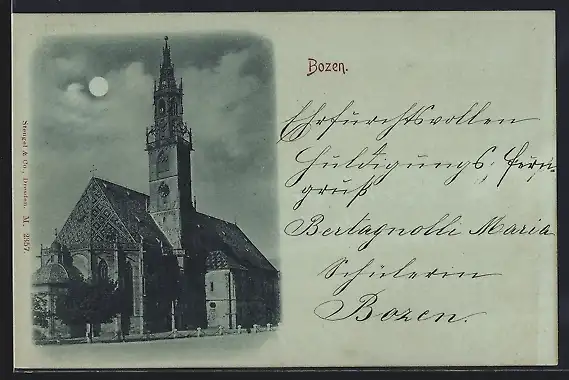 Bozen.
Ehrfurchtsvollen
Huldigungs: fern-
gruß
Bertagnolli Maria
Schülerin
Bozen.
Stengel & Co., Dresden. M. 2357.